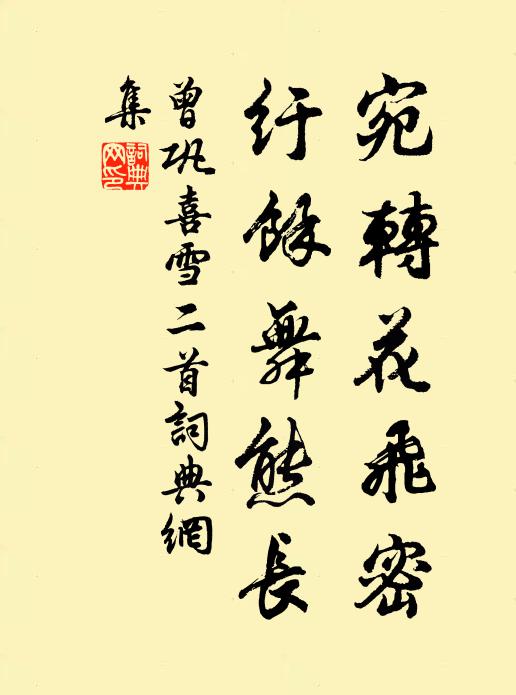 宛轉花飛密
紆餘舞態長
曾巩喜雪二首詞典網
集
詞典
网印